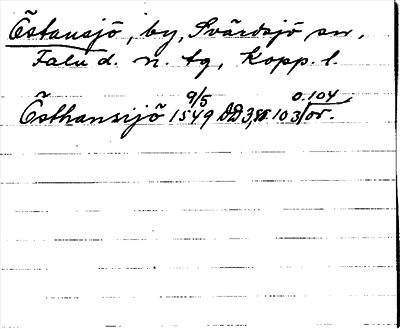 Östansjö, by, Svärdsjö sn,
Falu d. n. tg, Kopp. l.
Östhansijö 1549 9/5 DD 3, 103 o. 104 or.